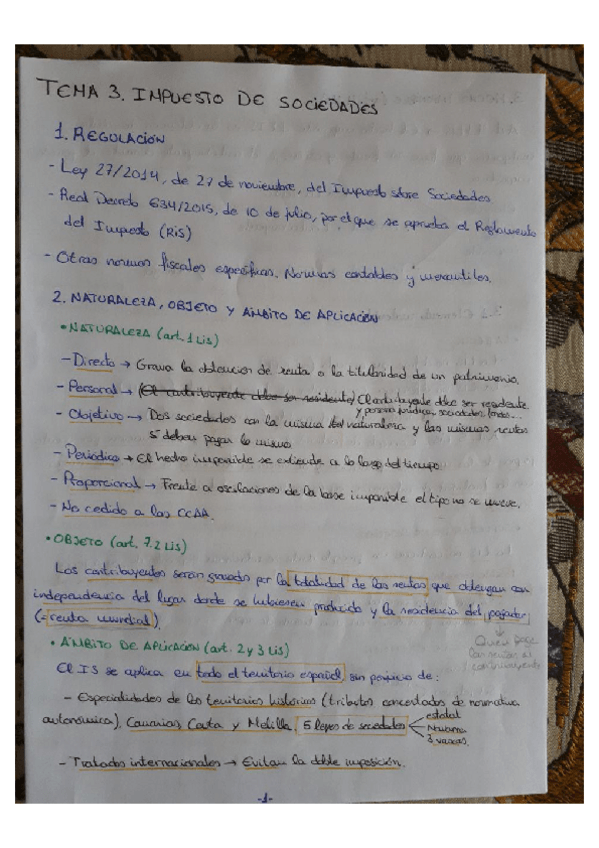 TEMA 3. IMPUESTO DE SOCIEDADES
1. REGULACIÓN
- Ley 27/2014, de 27 de noviembre, del Impuesto sobre Sociedades
- Real Decreto 634/2015, de 10 de julio, por el que se aprueba el Reglamento
del Impuesto (RIS)
- Otras normas fiscales específicas. Normas contables y mercantiles.
2. NATURALEZA, OBJETO Y ÁMBITO DE APLICACIÓN
• NATURALEZA (art. 1 LIS)
- Directo → Grava la obtención de renta o la titularidad de un patrimonio.
- Personal → (El contribuyente debe ser residente) El contribuyente debe ser residente
y persona jurídica, sociedades, fondos...
- Objetivo → Dos sociedades con la misma naturaleza y las mismas rentas
deben pagar lo mismo
- Periódico → El hecho imponible se extiende a lo largo del tiempo
- Proporcional → Frente a oscilaciones de la base imponible el tipo no se mueve.
- No cedido a las CCAA.
• OBJETO (art. 7.2 LIS)
Los contribuyentes serán gravados por la totalidad de las rentas que obtengan con
independencia del lugar donde se hubiesen producido y la residencia del pagador
(= renta mundial)
Quien paga
las rentas al
contribuyente
• ÁMBITO DE APLICACIÓN (art. 2 y 3 LIS)
El IS se aplica en todo el territorio español sin perjuicio de:
- Especialidades de los territorios históricos (tributos concertados de normativa
autonómica), Canarias, Ceuta y Melilla. 5 leyes de sociedades
estatal
Navarra
3 vascas.
- Tratados internacionales → Evitan la doble imposición.
-1-